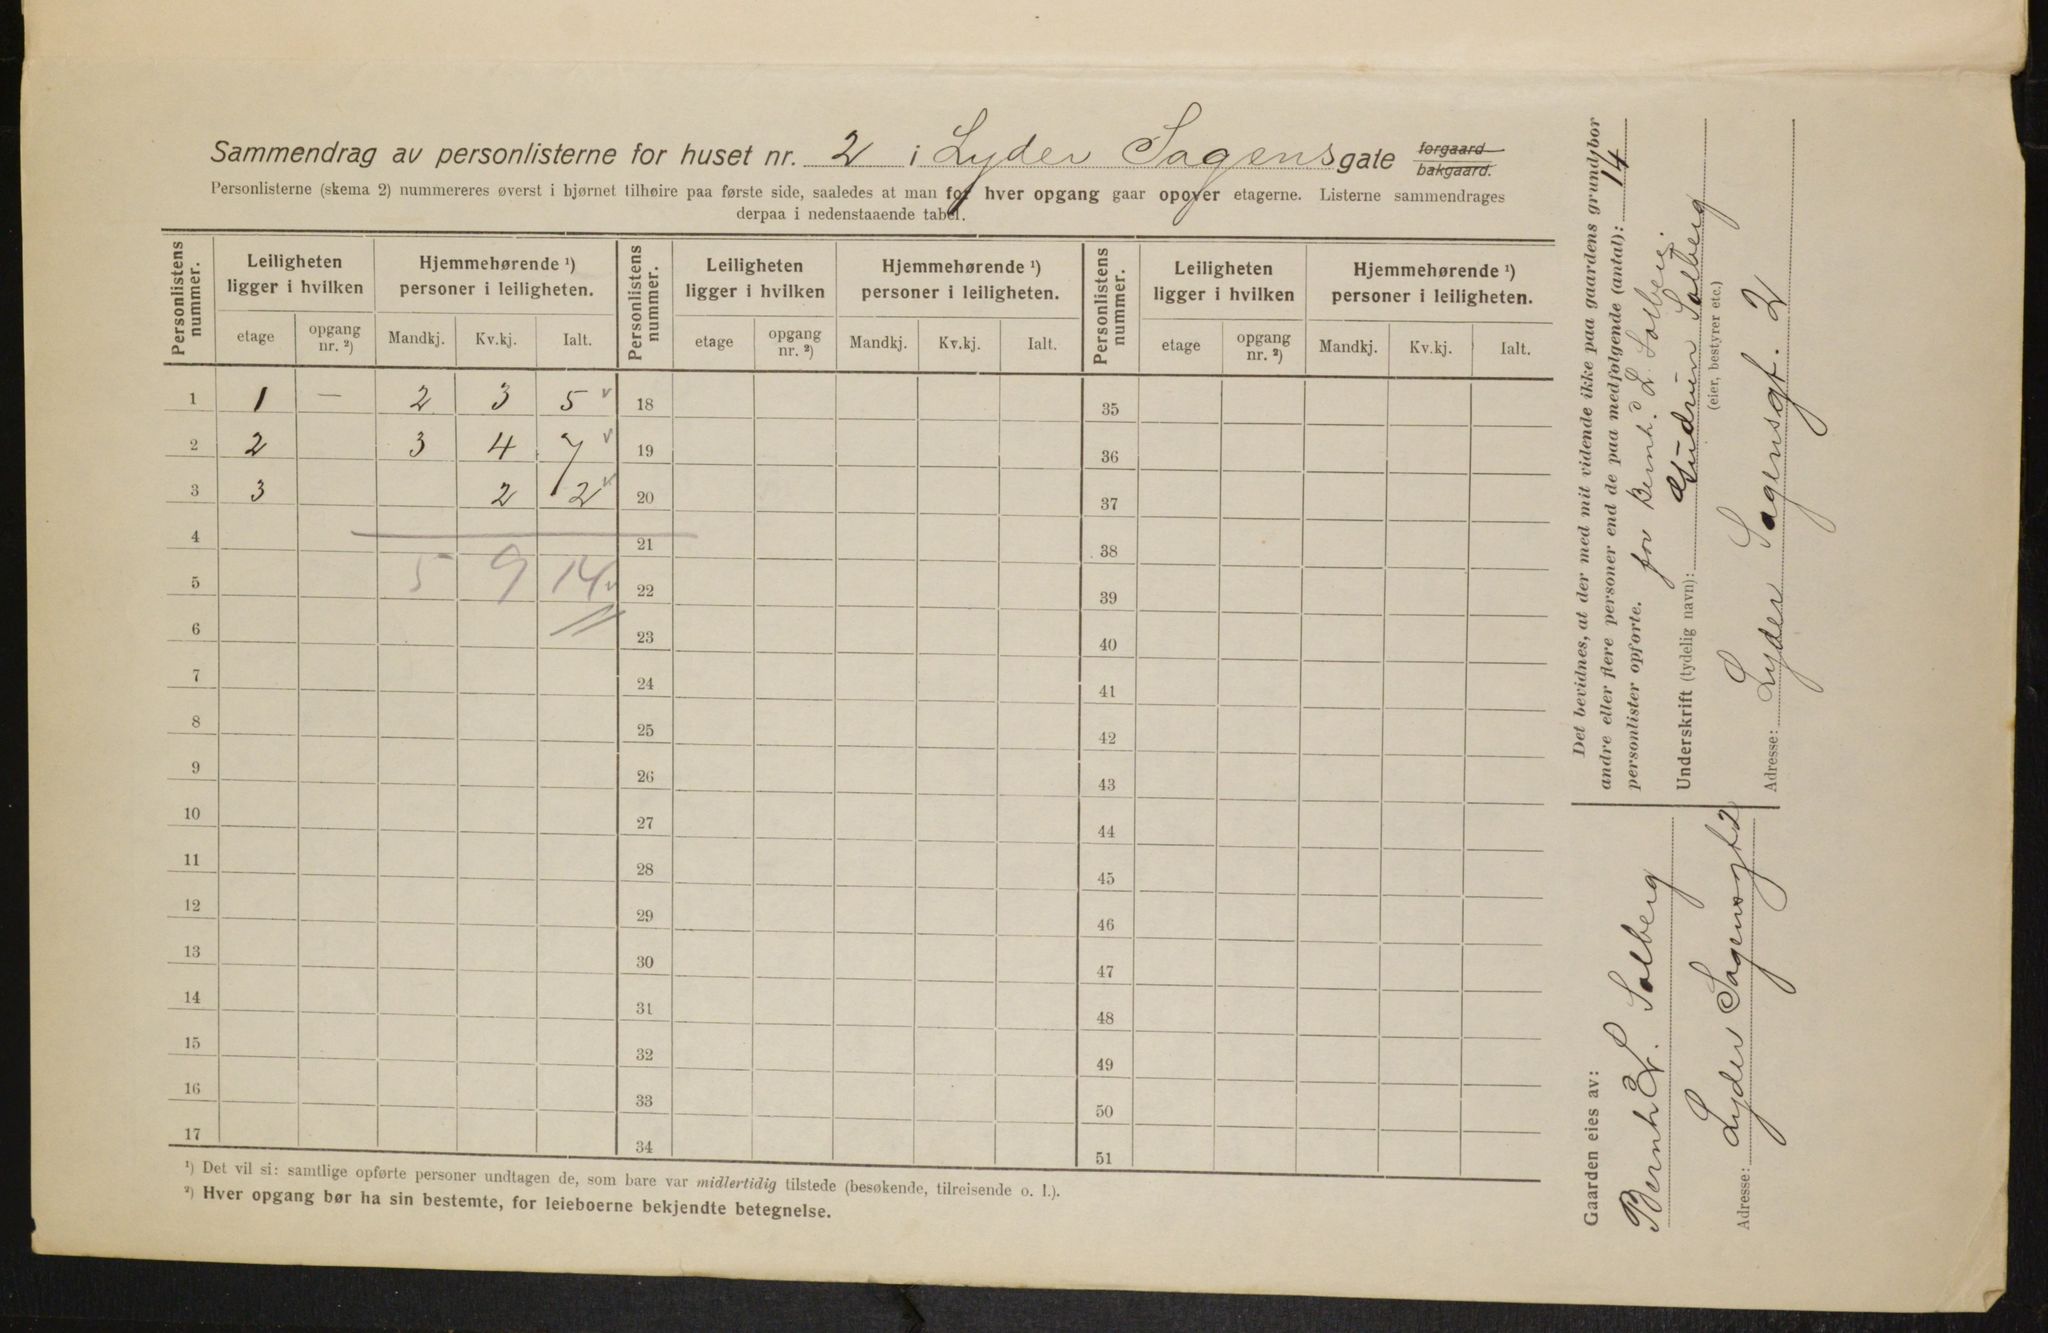 Sammendrag av personlisterne for huset nr. 2 i Lyder Sagensgate forgaard bakgaard.
Personlisterne (skema 2) nummereres øverst i hjørnet tilhøire paa første side, saaledes at man for hver opgang gaar opover etagerne. Listerne sammendrages
derpaa i nedenstaaende tabel.
Personlistens nummer. Leiligheten ligger i hvilken Hjemmehørende ¹) personer i leiligheten. Personlistens nummer. Leiligheten ligger i hvilken Hjemmehørende ¹) personer i leiligheten. Personlistens nummer. Leiligheten ligger i hvilken Hjemmehørende ¹) personer i leiligheten.
etage opgang nr. ²) Mandkj. Kv.kj. Ialt. etage opgang nr. ²) Mandkj. Kv.kj. Ialt. etage opgang nr. ²) Mandkj. Kv.kj. Ialt.
1 1 — 2 3 5 v 18 35
2 2 3 4 7 v 19 36
3 3 2 2 v 20 37
4 21 38
5 5 9 14 v 22 39
6 23 40
7 24 41
8 25 42
9 26 43
10 27 44
11 28 45
12 29 46
13 30 47
14 31 48
15 32 49
16 33 50
17 34 51
¹) Det vil si: samtlige opførte personer undtagen de, som bare var midlertidig tilstede (besøkende, tilreisende o. l.).
²) Hver opgang bør ha sin bestemte, for leieboerne bekjendte betegnelse.
Det bevidnes, at der med mit vidende ikke paa gaardens grund bor
andre eller flere personer end de paa medfølgende (antal): 14
personlister opførte. for Bernh. L. Solberg.
Underskrift (tydelig navn): Solberg
(eier, bestyrer etc.)
Adresse: Lyder Sagensgt. 2
Gaarden eies av:
Bernh. L. Solberg
Adresse: Lyder Sagensgt 2